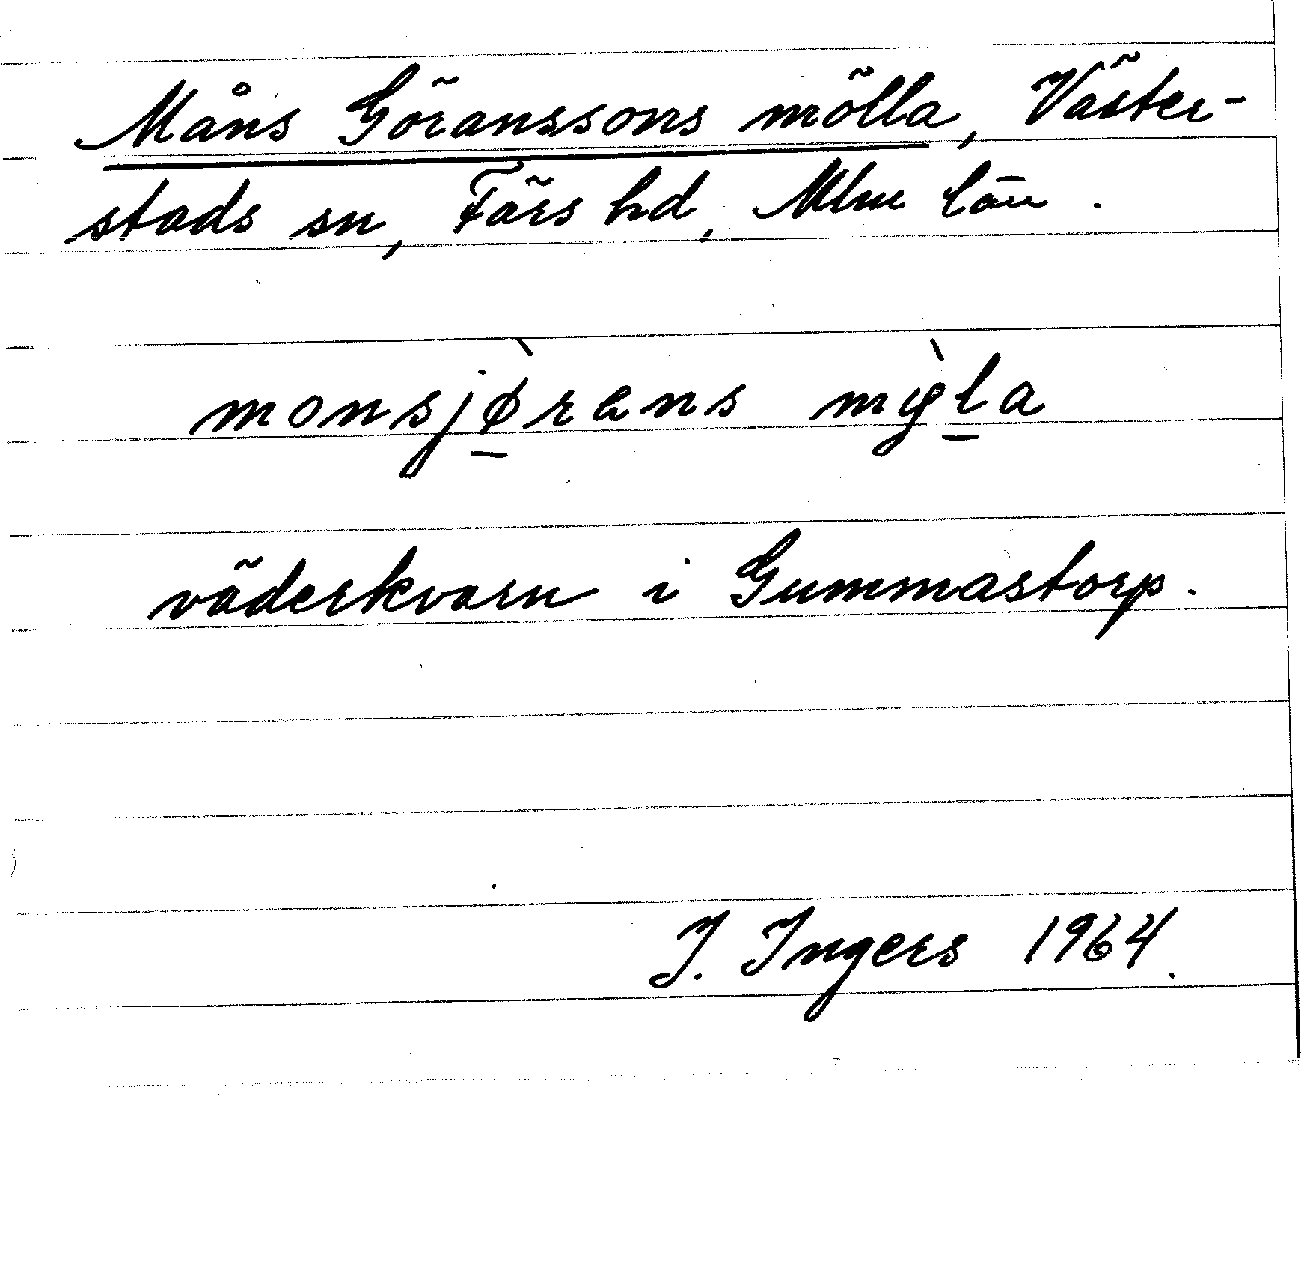 Måns Göranssons mölla, Väster-
stads sn, Färs hd, Mlm län.
monsjø̀rens mỳla
väderkvarn i Gummastorp.
I. Ingers 1964.